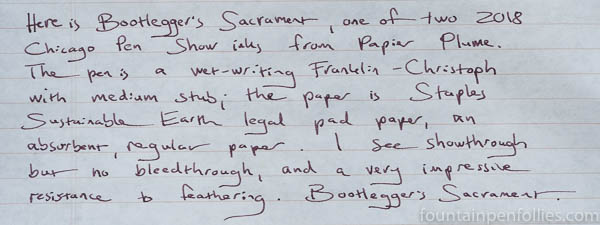 Here is Bootlegger's Sacrament, one of two 2018
Chicago Pen Show inks from Papier Plume.
The pen is a wet-writing Franklin-Christoph
with medium stub; the paper is Staples
Sustainable Earth legal pad paper, an
absorbent, regular paper. I see showthrough
but no bleedthrough, and a very impressive
resistance to feathering. Bootlegger's Sacrament.
fountainpenfollies.com